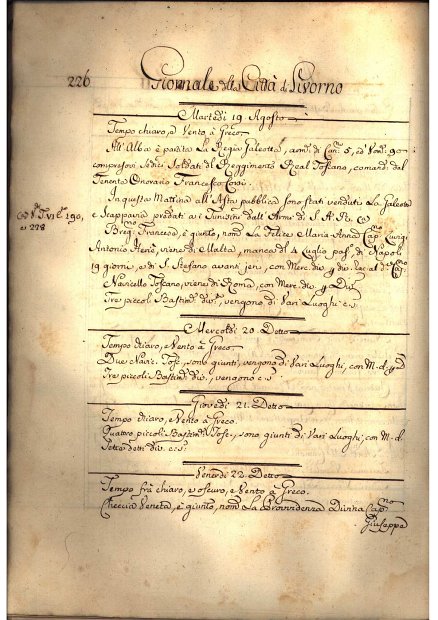 226
Giornale della Città di Livorno
Martedi 19. Agosto
Tempo chiaro, e Vento à Greco.
All'Alba è partita La Regia Galeotta, arm. di Can. 5, ed Uom. 90
compresovi sedici Soldati del Reggimento Real Toscano, comand. dal
Tenente Onorario Francesco
In questa Mattina all'Asta pubblica sono stati venduti La Galeotta
e Scappavia predati ai Tunisini dall'Arm. di S. A. R.
T. VI 190,
e 228
Brig. Francese, è giunto, nom. La Felice Maria Anna Cap. Luigi
Antonio viene di Malta, manca dal 4 Luglio pas., di Napoli
19 giorni, e di S. Stefano avant'jeri, con Merc. div. al
Navicello Toscano, viene di Roma, con Merc. div.
Tre piccoli Bastim. div., vengono di Vari Luoghi c. s.
Mercoldi 20. Detto
Tempo chiaro, e Vento à Greco.
Due Navic. Tosc., sono giunti, vengono di Vari Luoghi, con M. d.
Tre piccoli Bastim. div., vengono c. s.
Giovedi 21. Detto
Tempo chiaro, e Vento à Greco.
Quattro piccoli Bastim. Tosc., sono giunti di Vari Luoghi, con M. d.
detti div. c. s.
Venerdi 22. Detto
Tempo frà chiaro, e oscuro, e Vento à Greco.
Checcia Veneta, è giunta, nom. La Provvidenza Divina Cap.no
Giuseppe